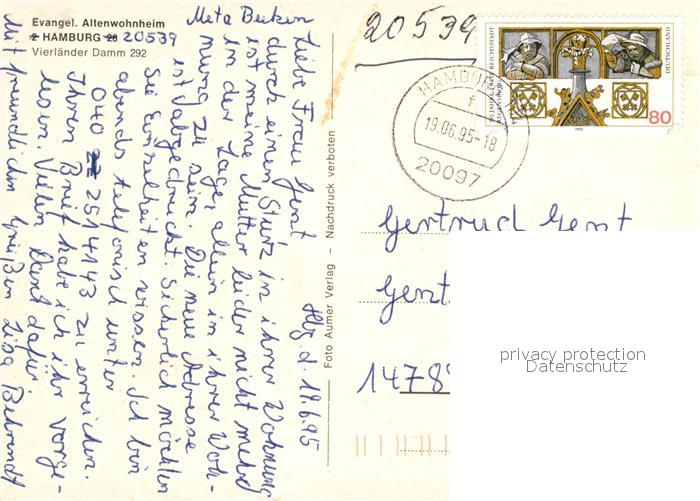 Evangel. Altenwohnheim
2 HAMBURG 28 20539
Vierländer Damm 292
Meta Becken
Hbg d. 19.6.95
Liebe Frau Genz
durch einen Sturz in ihrer Wohnung
ist meine Mutter leider nicht mehr
in der Lage, allein in ihrer Woh-
nung zu sein. Die neue Adresse
ist Vabgedruckt. Sicherlich möchten
Sie Einzelheiten wissen. Ich bin
abends telefonisch unter
040 2514143 zu erreichen.
Ihren Brief habe ich ihr vorge-
lesen. Vielen Dank dafür
Mit freundlichen Grüßen Lisa Behrendt
Foto Aumer Verlag - Nachdruck verboten
20539
HAMBURG
f
19.06.95-18
20097
REICHSSTADT
DEUTSCHLAND
80
1995
Gertrud Genz
Genz
1478
privacy protection
Datenschutz